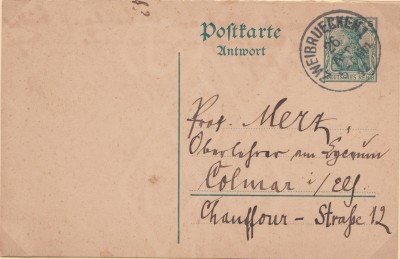 Postkarte
Antwort
ZWEIBRUECKEN 1
DEUTSCHES REICH
Prof. Merz,
Oberlehrer am Lyceum
Colmar i/Els.
Chauffour-Straße 12